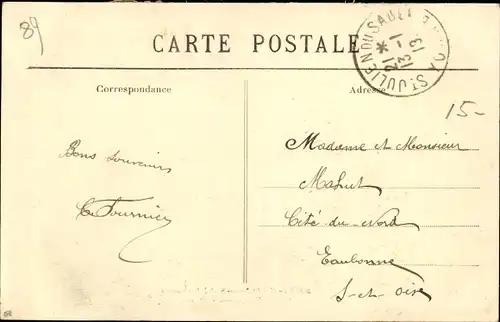 89
CARTE POSTALE
ST JULIEN DU SAULT
12 - 1
13
Correspondance
Adresse
15-
Bons souvenirs
C. Fournier
Madame et Monsieur
Mahut
Cité du Nord
Eaubonne
S-et-Oise